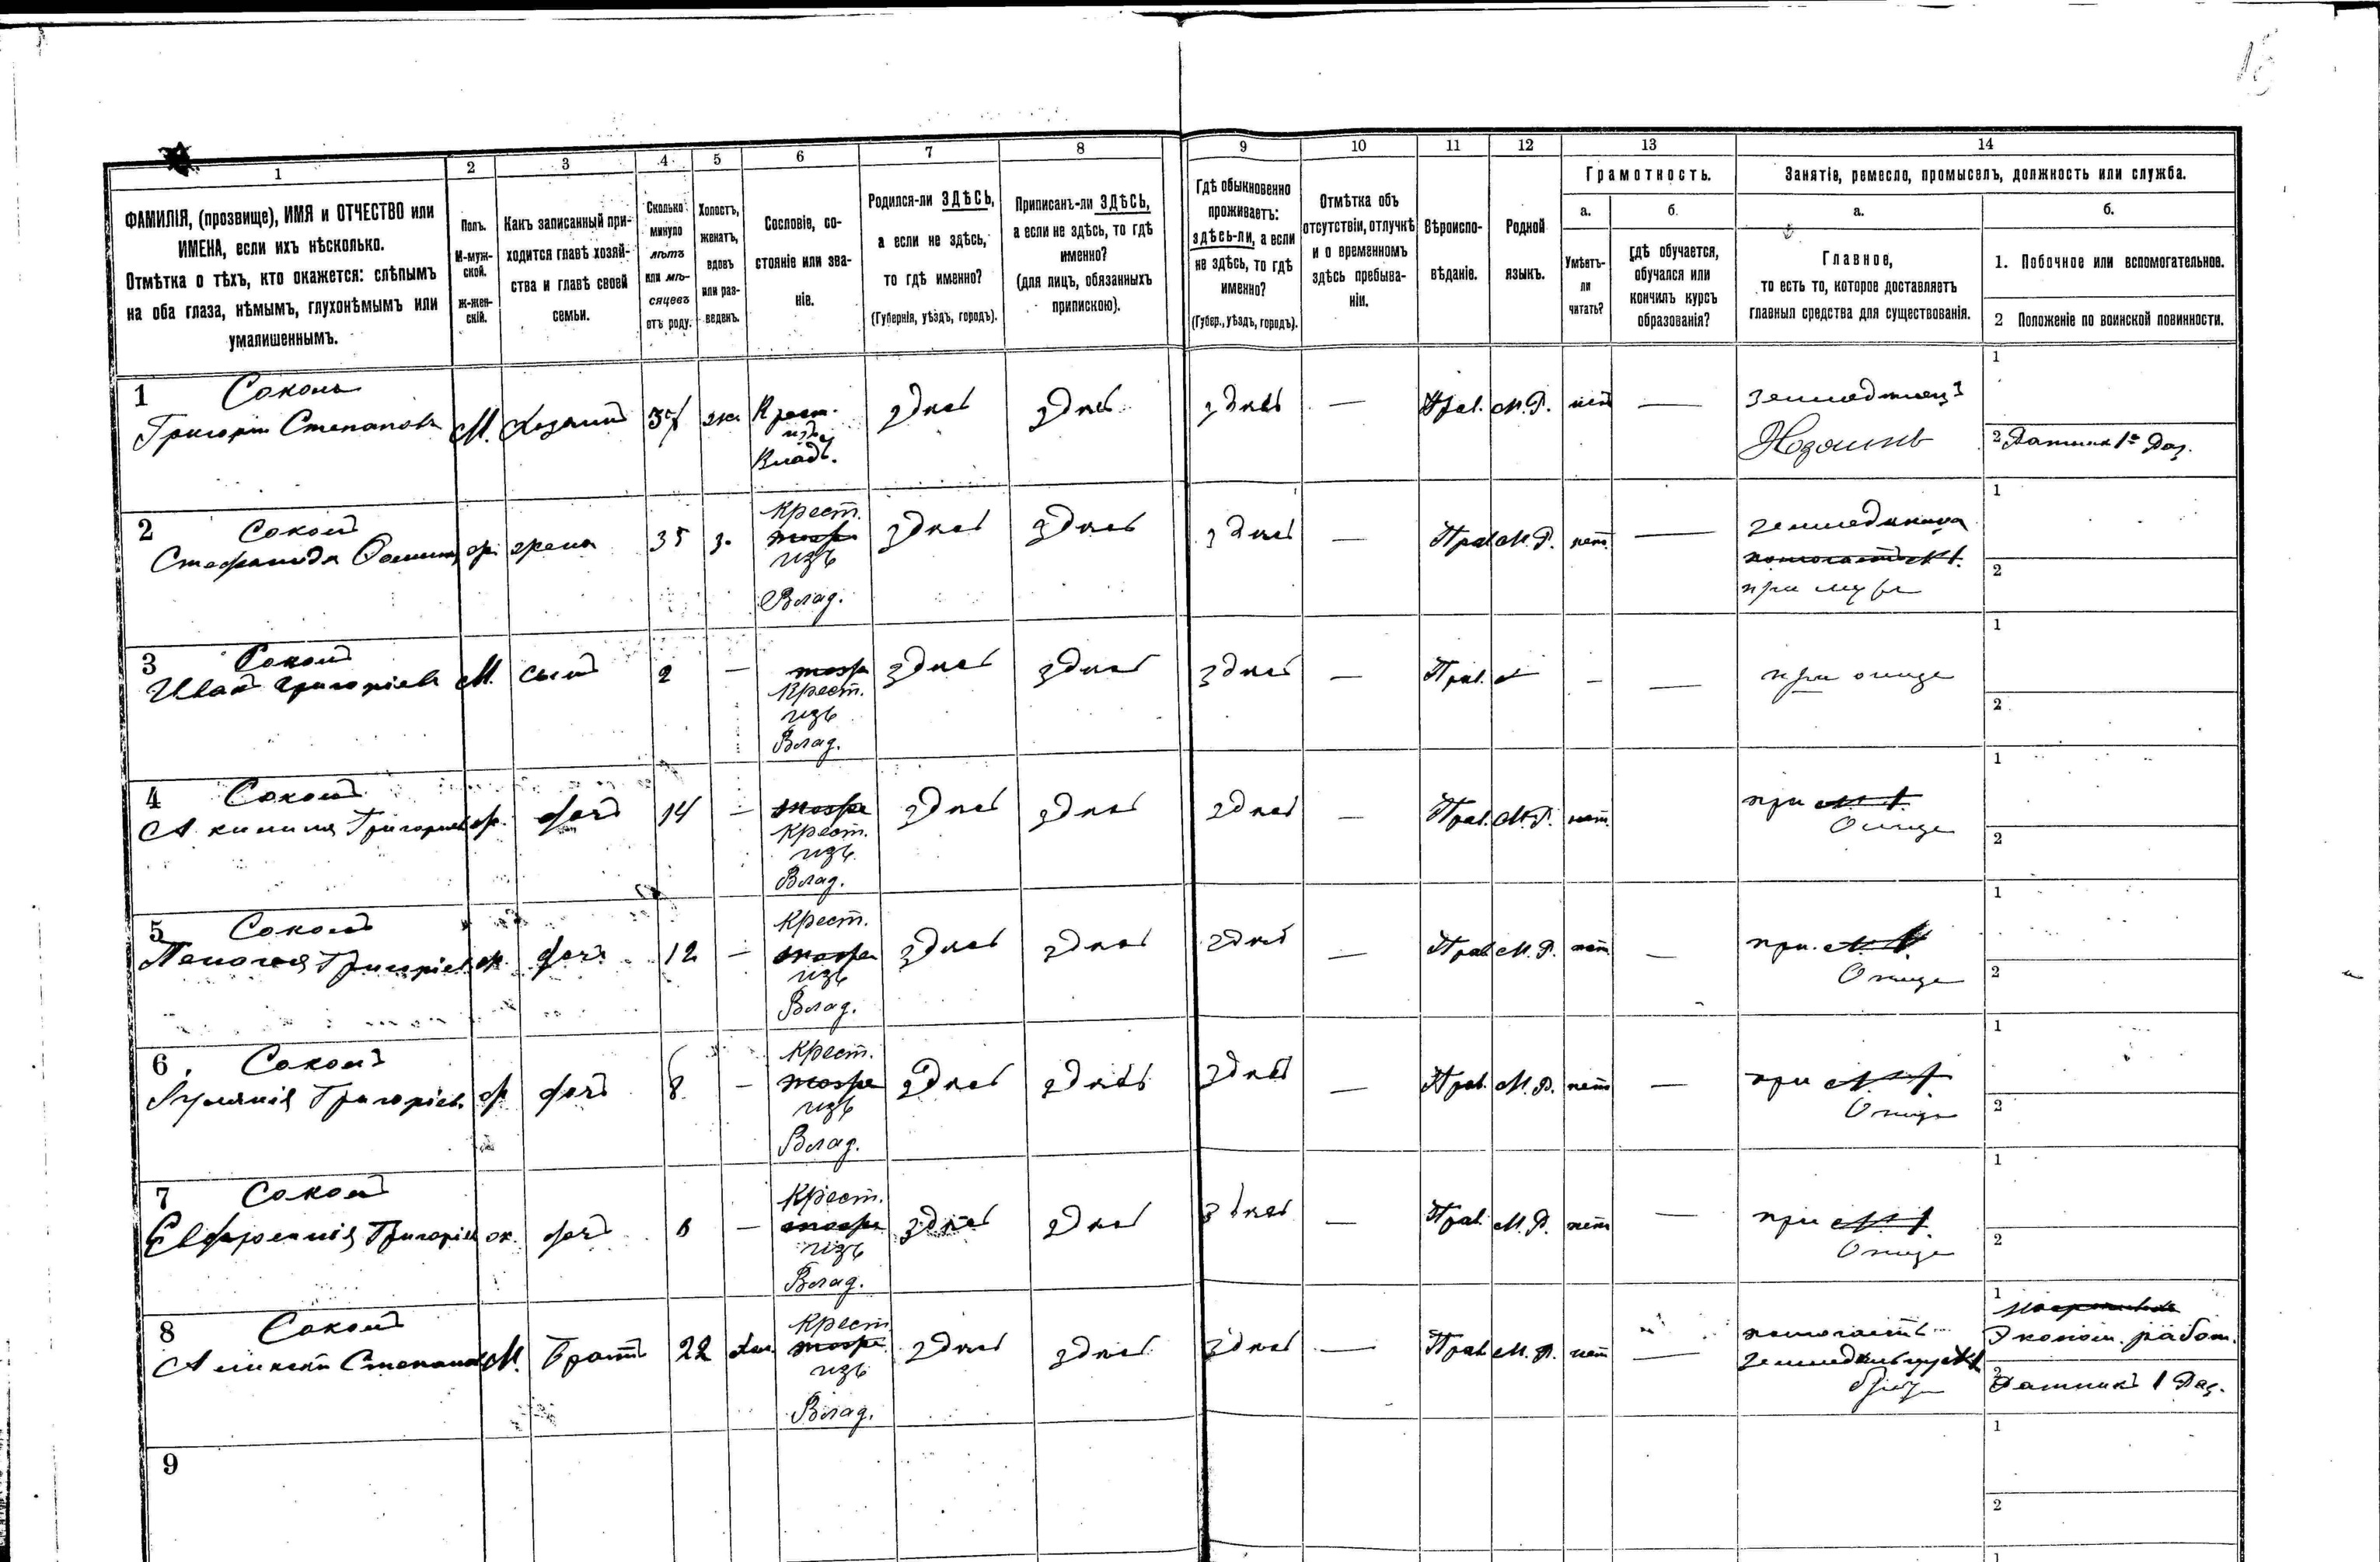 1
2
3
4
5
6
7
8
9
10
11
12
13
14
ФАМИЛІЯ, (прозвище), ИМЯ и ОТЧЕСТВО или
ИМЕНА, если ихъ нѣсколько.
Отмѣтка о тѣхъ, кто окажется: слѣпымъ
на оба глаза, нѣмымъ, глухонѣмымъ или
умалишеннымъ.
Полъ.
М-муж-
ской.
ж-жен-
скій.
Какъ записанный при-
ходится главѣ хозяй-
ства и главѣ своей
семьи.
Сколько
минуло
лѣтъ
или мѣ-
сяцевъ
отъ роду.
Холостъ,
женатъ,
вдовъ
или раз-
веденъ.
Сословіе, со-
стояніе или зва-
ніе.
Родился-ли ЗДѢСЬ,
а если не здѣсь,
то гдѣ именно?
(Губернія, уѣздъ, городъ).
Приписанъ-ли ЗДѢСЬ,
а если не здѣсь, то гдѣ
именно?
(для лицъ, обязанныхъ
припискою).
Гдѣ обыкновенно
проживаетъ:
здѣсь-ли, а если
не здѣсь, то гдѣ
именно?
(Губер., уѣздъ, городъ).
Отмѣтка объ
отсутствіи, отлучкѣ
и о временномъ
здѣсь пребыва-
ніи.
Вѣроиспо-
вѣданіе.
Родной
языкъ.
Грамотность.
а.
Умѣетъ-
ли
читать?
б.
Гдѣ обучается,
обучался или
кончилъ курсъ
образованія?
Занятіе, ремесло, промыселъ, должность или служба.
а.
Главное,
то есть то, которое доставляетъ
главныя средства для существованія.
б.
1. Побочное или вспомогательное.
2 Положеніе по воинской повинности.
1 Соколъ
Григорій Степановъ М. Хозяинъ 37 жен. Крест. изъ Влад. здѣсь здѣсь здѣсь — Прав. М.Р. нѣтъ — земледѣлецъ
Хозяинъ
1
2 Ратникъ 1го Раз.
2 Соколъ
Стефанида ж. жена 35 з. Крест. изъ Влад. здѣсь здѣсь здѣсь — Прав М.Р. нѣтъ —
при мужѣ
1
2
3 Соколъ
Иванъ Григоріевъ М. сынъ 2 — Крест. изъ Влад. здѣсь здѣсь здѣсь — Прав. — — при отцѣ
1
2
4 Соколъ
Акилина Григоріев ж. дочь 14 — Крест. изъ Влад. здѣсь здѣсь здѣсь — Прав. М.Р. нѣтъ при
Отцѣ
1
2
5 Соколъ
Пелагея Григоріев ж. дочь 12 — Крест. изъ Влад. здѣсь здѣсь здѣсь — Прав М.Р. нѣтъ — при
Отцѣ
1
2
6 Соколъ
Григоріев. ж дочь 8 — Крест. изъ Влад. здѣсь здѣсь здѣсь — Прав. М.Р. нѣтъ — при
Отцѣ
1
2
7 Соколъ
Евфросинія Григоріев ж. дочь 6 — Крест. изъ Влад. здѣсь здѣсь здѣсь — Прав. М.Р. нѣтъ — при
Отцѣ
1
2
8 Соколъ
Алексѣй Степанов М. Братъ 22 Хол. Крест изъ Влад. здѣсь здѣсь здѣсь — Прав М.Р. нѣтъ — помогаетъ
брату
1
Эконом. работ.
2 Ратникъ 1 Раз.
9
1
2
1